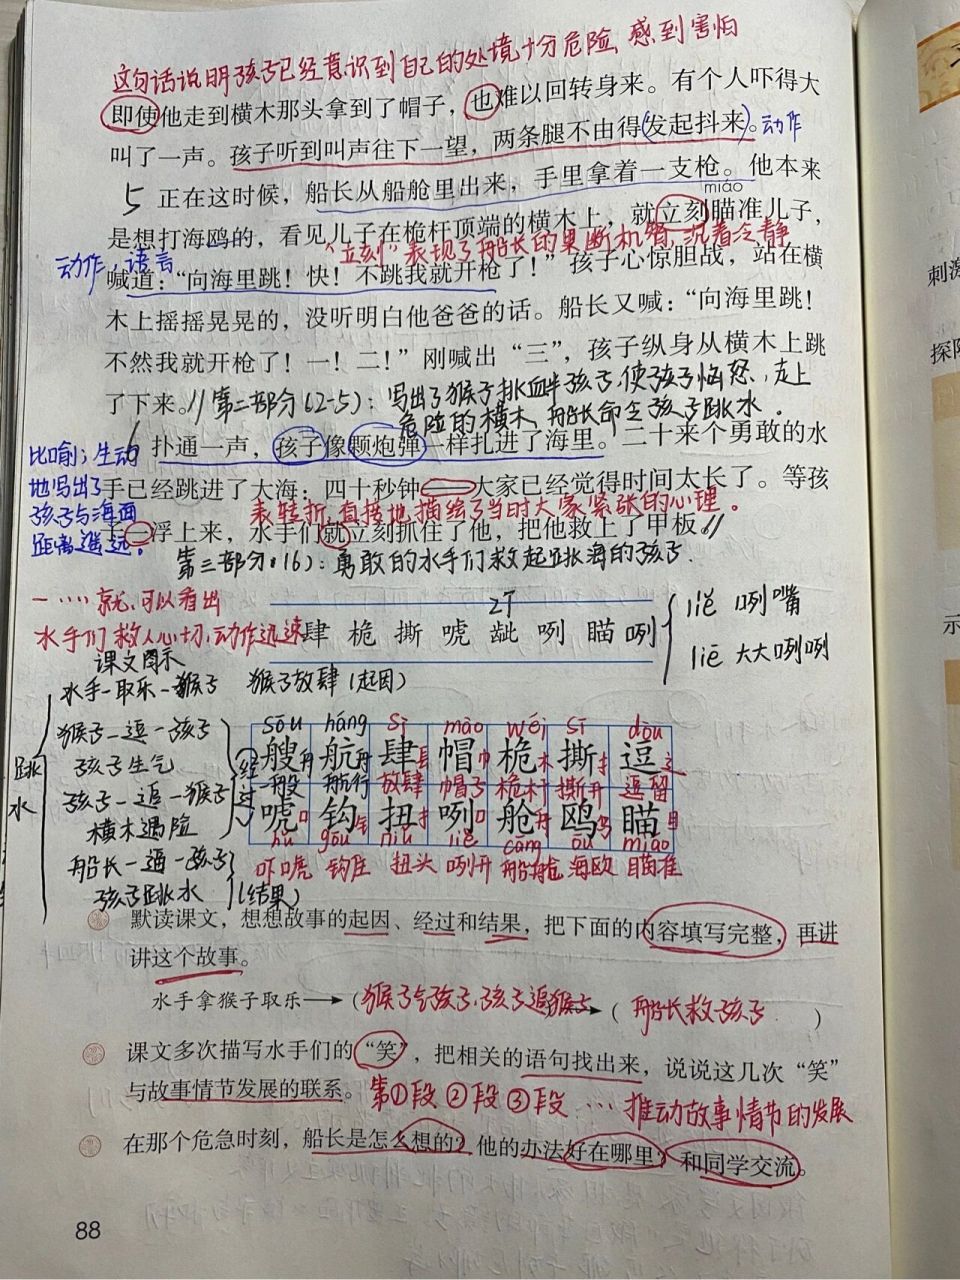 这句话说明孩子已经意识到自己的处境十分危险,感到害怕
即使他走到横木那头拿到了帽子，也难以回转身来。有个人吓得大
叫了一声。孩子听到叫声往下一望，两条腿不由得(发起抖来)。动作
5 正在这时候，船长从船舱里出来，手里拿着一支枪。他本来
miáo
是想打海鸥的，看见儿子在桅杆顶端的横木上，就立刻瞄准儿子，
"立刻"表现了船长的果断机智,沉着冷静
动作,语言
喊道：“向海里跳！快！不跳我就开枪了！”孩子心惊胆战，站在横
木上摇摇晃晃的，没听明白他爸爸的话。船长又喊：“向海里跳！
不然我就开枪了！一！二！”刚喊出“三”，孩子纵身从横木上跳
了下来。//第二部分(2-5)：写出了猴子挑衅孩子,使孩子恼怒,走上
危险的横木,船长命令孩子跳水.
6 扑通一声，孩子像颗炮弹一样扎进了海里。二十来个勇敢的水
比喻；生动
地写出了
孩子与海面
距离遥远.
手已经跳进了大海：四十秒钟——大家已经觉得时间太长了。等孩
表转折,直接地描绘了当时大家紧张的心理.
子一浮上来，水手们就立刻抓住了他，把他救上了甲板。//
第三部分:16)：勇敢的水手们救起跳海的孩子.
一……就,可以看出
水手们救人心切,动作迅速
zī
肆 桅 撕 唬 龇 咧 瞄 咧
liě 咧嘴
liē 大大咧咧
课文图示
跳水
水手—取乐—猴子 猴子放肆(起因)
猴子—逗—孩子
孩子生气
孩子—追—猴子
横木遇险
经过
船长—逼—孩子
孩子跳水
(结果)
sōu háng sì mào wéi sī dòu
艘舟 航舟 肆镸 帽巾 桅木 撕扌 逗辶
一艘 航行 放肆 帽子 桅杆 撕开 逗留
唬口 钩钅 扭扌 咧口 舱舟 鸥鸟 瞄目
hǔ gōu niǔ liě cāng ōu miáo
吓唬 钩住 扭头 咧开 船舱 海欧 瞄准
默读课文，想想故事的起因、经过和结果，把下面的内容填写完整，再讲
讲这个故事。
水手拿猴子取乐→(猴子气孩子,孩子追猴子→( 船长救孩子 )
课文多次描写水手们的“笑”，把相关的语句找出来，说说这几次“笑”
与故事情节发展的联系。第①段 ②段 ③段 … 推动故事情节的发展
在那个危急时刻，船长是怎么想的？他的办法好在哪里？和同学交流。
88
刺激
探险
示